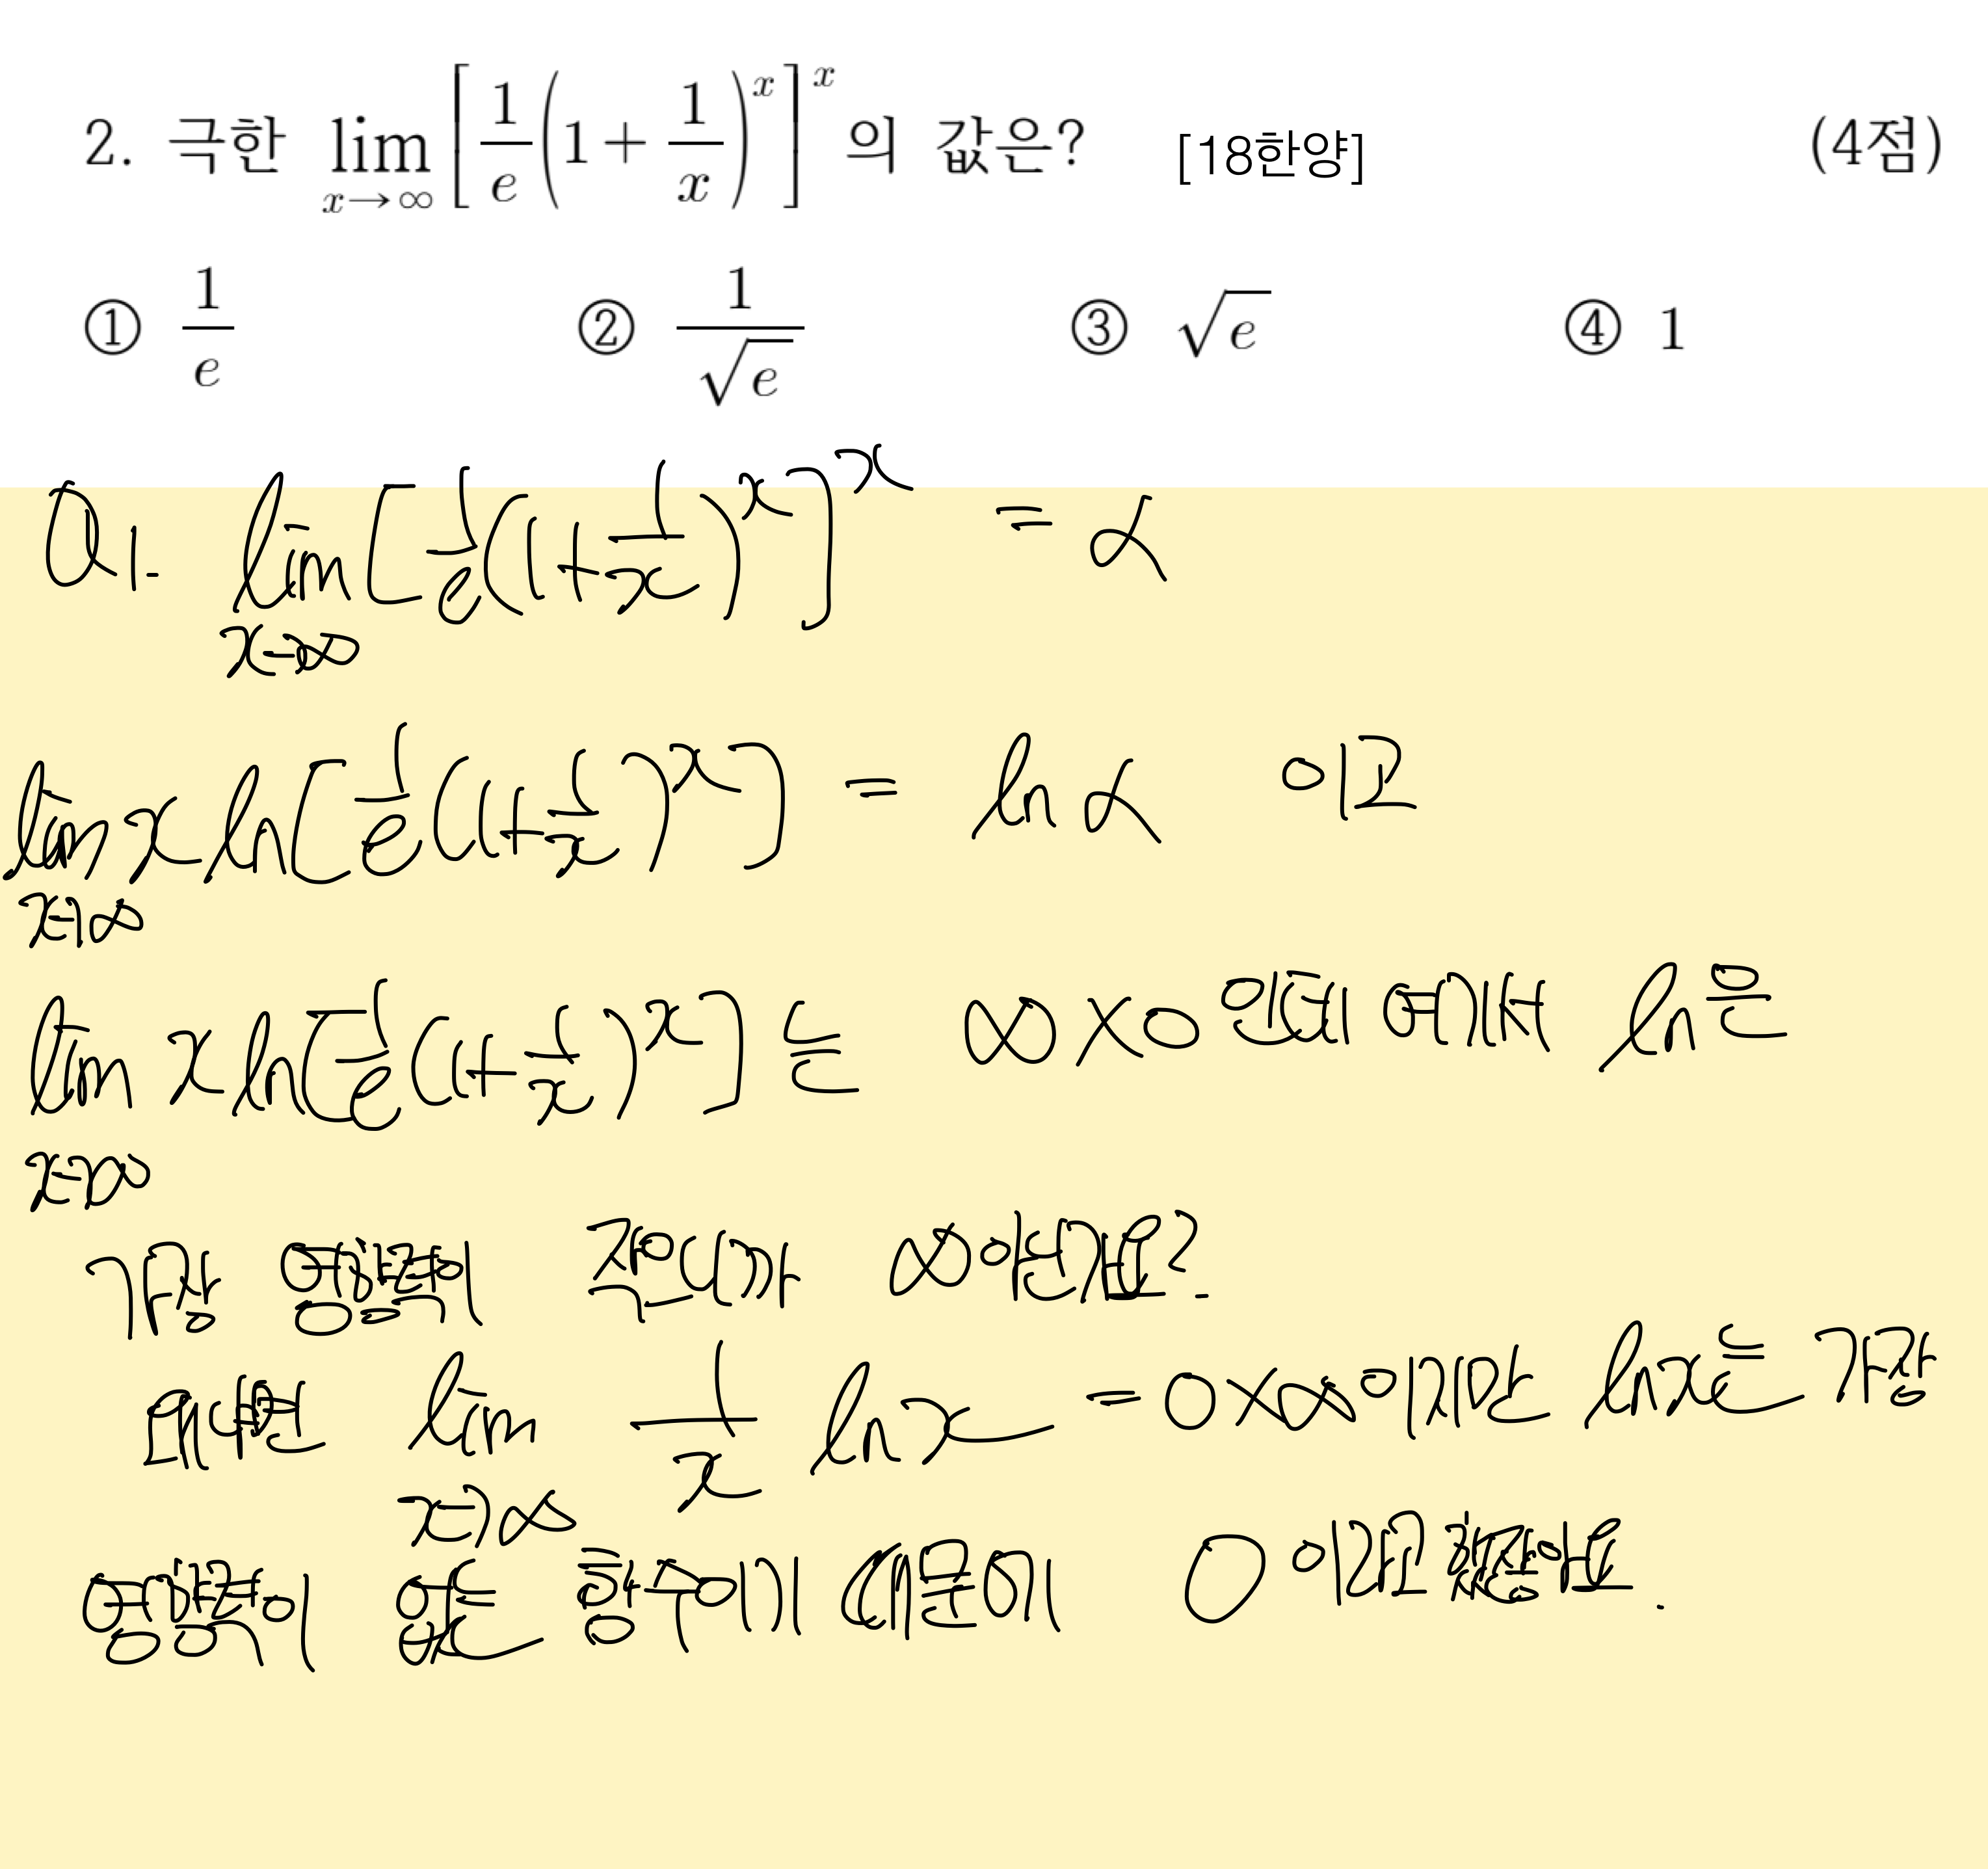 2. 극한 lim_{x→∞} [ 1/e ( 1 + 1/x )^x ]^x 의 값은? [18한양] (4점)
① 1/e ② 1/√e ③ √e ④ 1
Q1. lim_{x→∞} [ 1/e ( 1 + 1/x )^x ]^x = α
lim_{x→∞} x ln[ 1/e ( 1 + 1/x )^x ] = ln α 이고
lim_{x→∞} x ln[ 1/e ( 1 + 1/x )^x ] 는 ∞×0 인데 여기서 ln은
가장 영향력이 적으니까 ∞ 아닌가요?
왜냐면 lim_{x→∞} 1/x ln x = 0×∞이지만 ln x는 가장
영향력이 없는 함수이기 때문에 0 이라고 했잖아요.